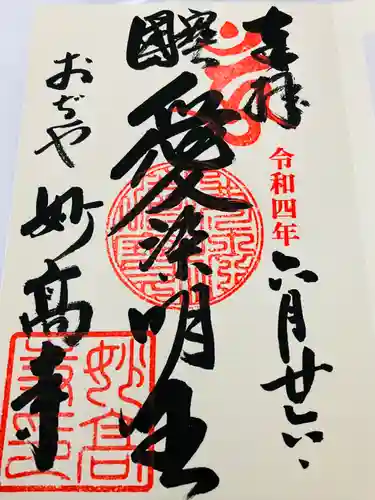 奉拝
令和四年六月廿六、
國寳
愛染明王
おぢや
妙高寺